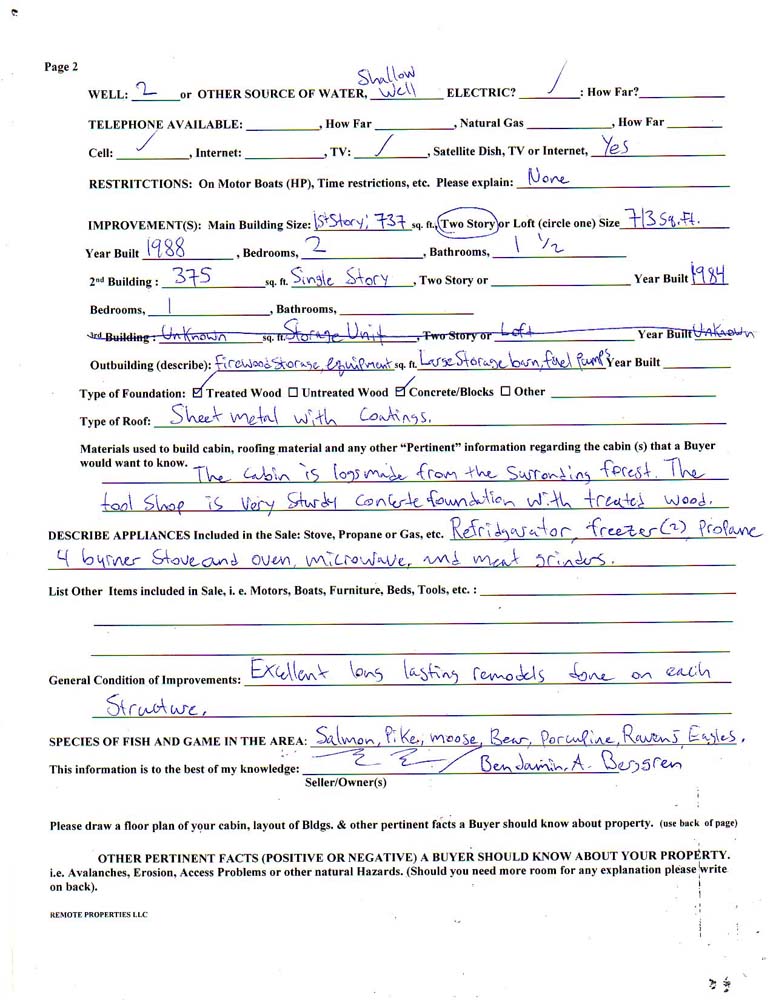 Page 2
WELL: 2 or OTHER SOURCE OF WATER, Shallow Well ELECTRIC? / : How Far?
TELEPHONE AVAILABLE: , How Far , Natural Gas , How Far
Cell: ✓ , Internet: , TV: ✓ , Satellite Dish, TV or Internet, Yes
RESTRITCTIONS: On Motor Boats (HP), Time restrictions, etc. Please explain: None
IMPROVEMENT(S): Main Building Size: 1st Story; 737 sq. ft., Two Story or Loft (circle one) Size 713 Sq.ft.
Year Built 1988 , Bedrooms, 2 , Bathrooms, 1 1/2
2nd Building : 375 sq. ft. Single Story , Two Story or Year Built 1984
Bedrooms, 1 , Bathrooms,
3rd Building : Unknown sq. ft. Storage Unit , Two Story or Loft Year Built Unknown
Outbuilding (describe): firewood Storage, equipment sq. ft. Large Storage barn, fuel pumps Year Built
Type of Foundation: ☑ Treated Wood ☐ Untreated Wood ☑ Concrete/Blocks ☐ Other
Type of Roof: Sheet metal with Coatings.
Materials used to build cabin, roofing material and any other “Pertinent” information regarding the cabin (s) that a Buyer
would want to know. The Cabin is logs made from the Surronding forest. The
tool Shop is Very Sturdy Concerte foundation with treated wood.
DESCRIBE APPLIANCES Included in the Sale: Stove, Propane or Gas, etc. Refridgarator, freezer(2) Propane
4 burner Stove and oven, microwave, and meat grinders.
List Other Items included in Sale, i. e. Motors, Boats, Furniture, Beds, Tools, etc. :
General Condition of Improvements: Excellent long lasting remodels done on each
Structure.
SPECIES OF FISH AND GAME IN THE AREA: Salmon, Pike, moose, Bear, Porcupine, Ravens, Eagles.
This information is to the best of my knowledge: Benjamin. A. Bergsren
Seller/Owner(s)
Please draw a floor plan of your cabin, layout of Bldgs. & other pertinent facts a Buyer should know about property. (use back of page)
OTHER PERTINENT FACTS (POSITIVE OR NEGATIVE) A BUYER SHOULD KNOW ABOUT YOUR PROPERTY.
i.e. Avalanches, Erosion, Access Problems or other natural Hazards. (Should you need more room for any explanation please write
on back).
REMOTE PROPERTIES LLC